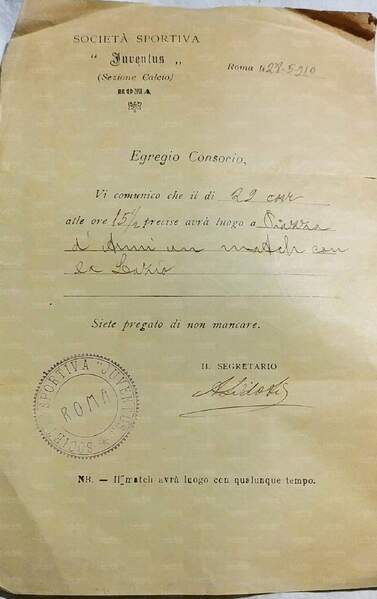 SOCIETÀ SPORTIVA
" Juventus „
(Sezione Calcio)
ROMA
Roma li 28-5-910
Egregio Consocio,
Vi comunico che il dì 29 corr
alle ore 15½ precise avrà luogo a Piazza
d'Armi un match con
la Lazio
Siete pregato di non mancare.
IL SEGRETARIO
SOCIETÀ SPORTIVA "JUVENTUS"
ROMA
NB. — Il match avrà luogo con qualunque tempo.